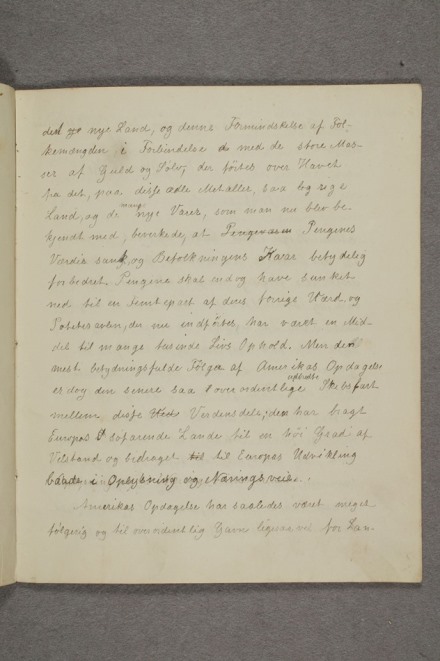 det nye Land, og denne Formindskelse af Fol-
kemængden i Forbindelse med de store Mas-
ser af Guld og Sølv, der førtes over Havet
fra det, paa disse ædle Metaller, saa og rige
Land, og de mange nye Varer, som man nu blev be-
kjendt med, bevirkede, at Pengenes
Værdie sank, og Befolkningens Kaar betydelig
forbedret. Pengene skal endog have sunket
ned til en Femtepart af dens forrige Værd og
Potetesavlen, der nu indførtes, har været en Mid-
del til mange tusinde Livs Ophold. Men den
mest betydningsfulde Følge af Amerikas Opdagelse
er dog den senere saa overordentlige udbredte Skibsfart
mellem disse Verdensdele; den har bragt
Europas søfarende Lande til en høi Grad af
Velstand og bedraget til Europas Udvikling
baade i Oplysning og Næringsveie.
Amerikas Opdagelse har saaledes været meget
følgerig og til overordentlig Gavn ligesaavel for Lan-